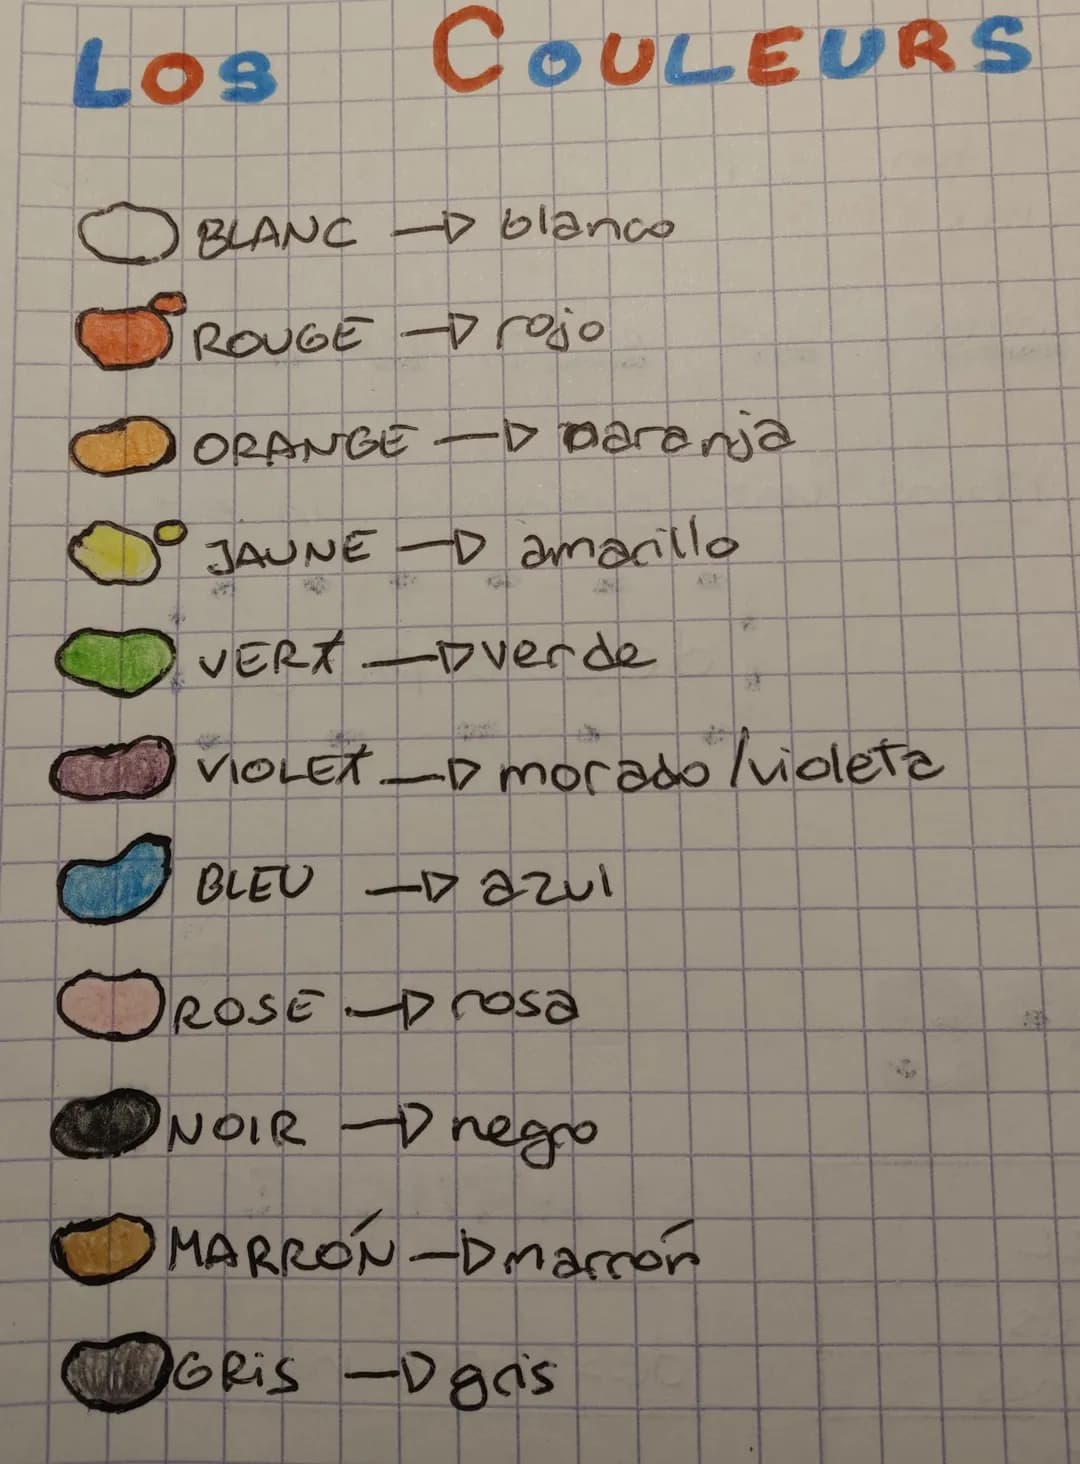 LOS COULEURS
BLANC → blanco
ROUGE → rojo
ORANGE → naranja
JAUNE → amarillo
VERT → verde
VIOLET → morado/violeta
BLEU → azul
ROSE → rosa
NOIR → negro
MARRÓN → marrón
GRiS → gris